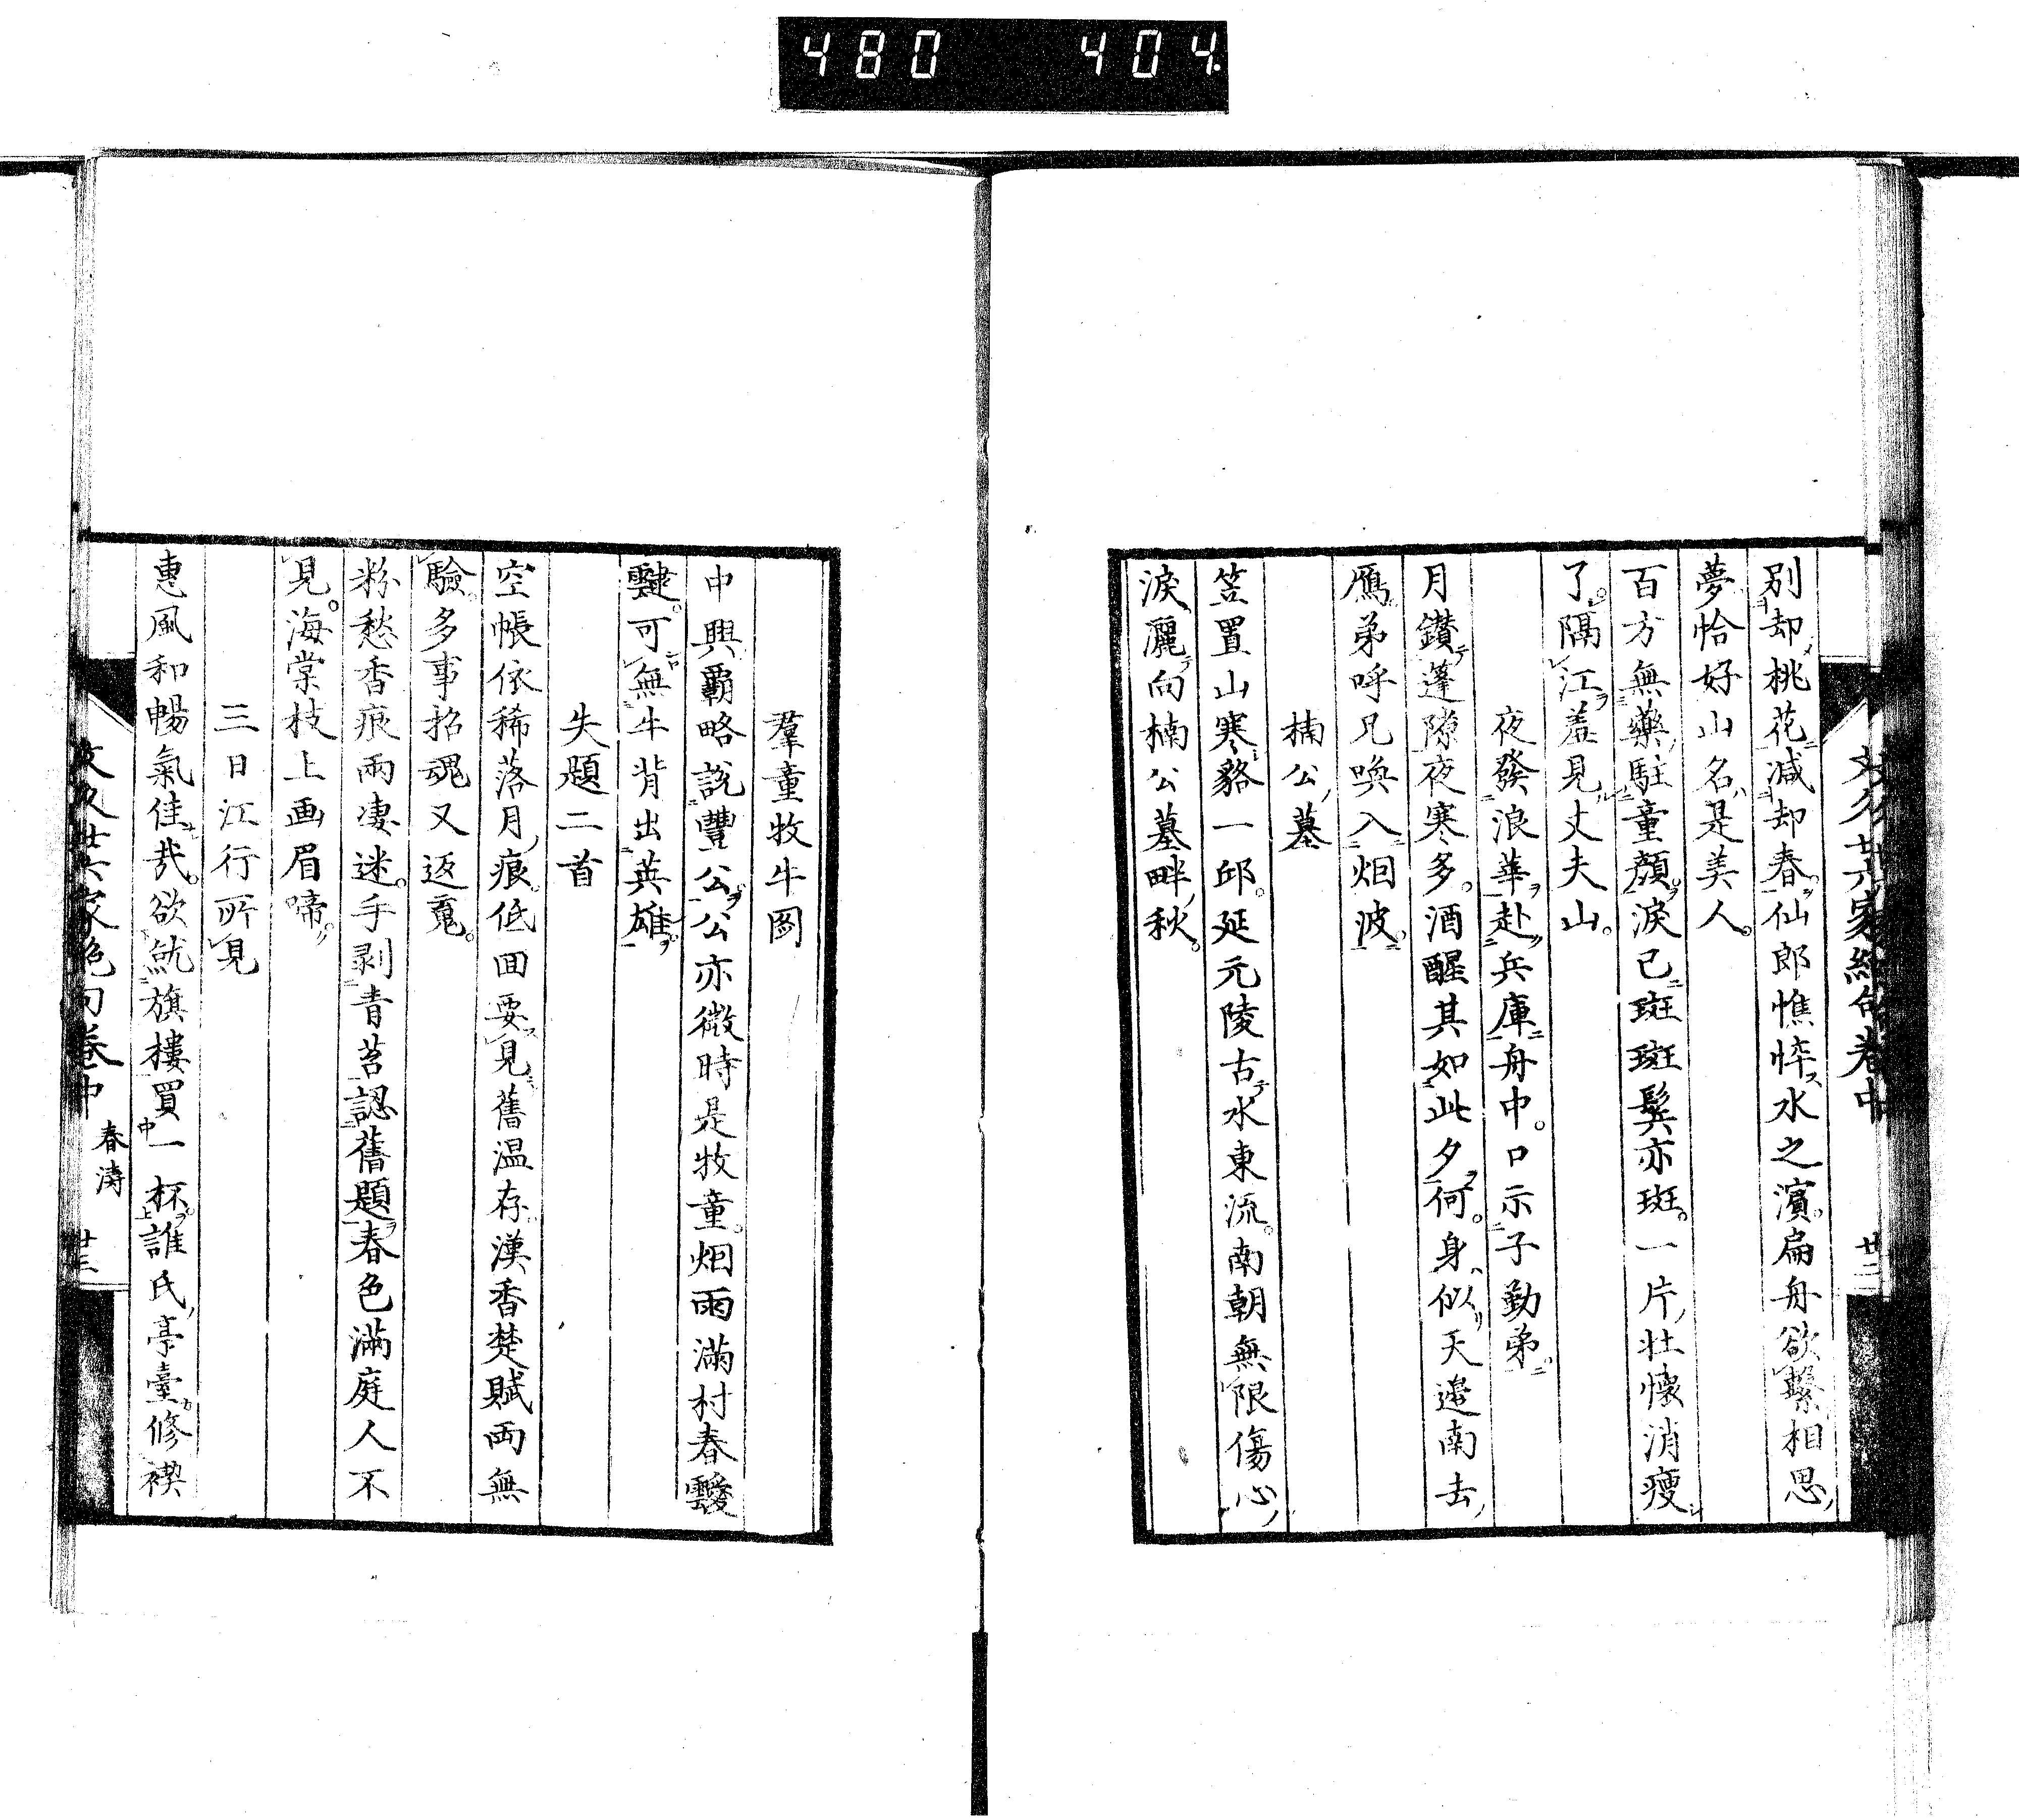 480 404
文久廿六家絶句卷中 廿二
別却桃花減却春仙郎憔悴水之濱。扁舟欲繫相思
夢恰好山名是美人。
百方無藥駐童顏淚已斑斑鬂亦斑。一片壯懷消瘦
了。隔江羞見丈夫山。
夜發浪華赴兵庫舟中。口示子勤弟
月鑚蓬隙夜寒多。酒醒其如此夕何。身似天邊南去
鴈。弟呼兄喚入烟波。
楠公墓
笠置山寒貉一邱。延元陵古水東流。南朝無限傷心
淚灑向楠公墓畔秋。
羣童牧牛圖
中興霸略說豐公公亦微時是牧童。烟雨滿村春靉
靆。可無牛背出英雄。
失題二首
空帳依稀落月痕。低回要見舊温存漢香楚賦両無
驗多事招魂又返䰟。
粉愁香痕雨凄迷。手剥青苔認舊題春色滿庭人不
見。海棠枝上画眉啼。
三日江行所見
惠風和暢氣佳哉。欲就旗樓買一杯。誰氏亭臺修禊
文久廿六家絶句卷中 春濤 廿三